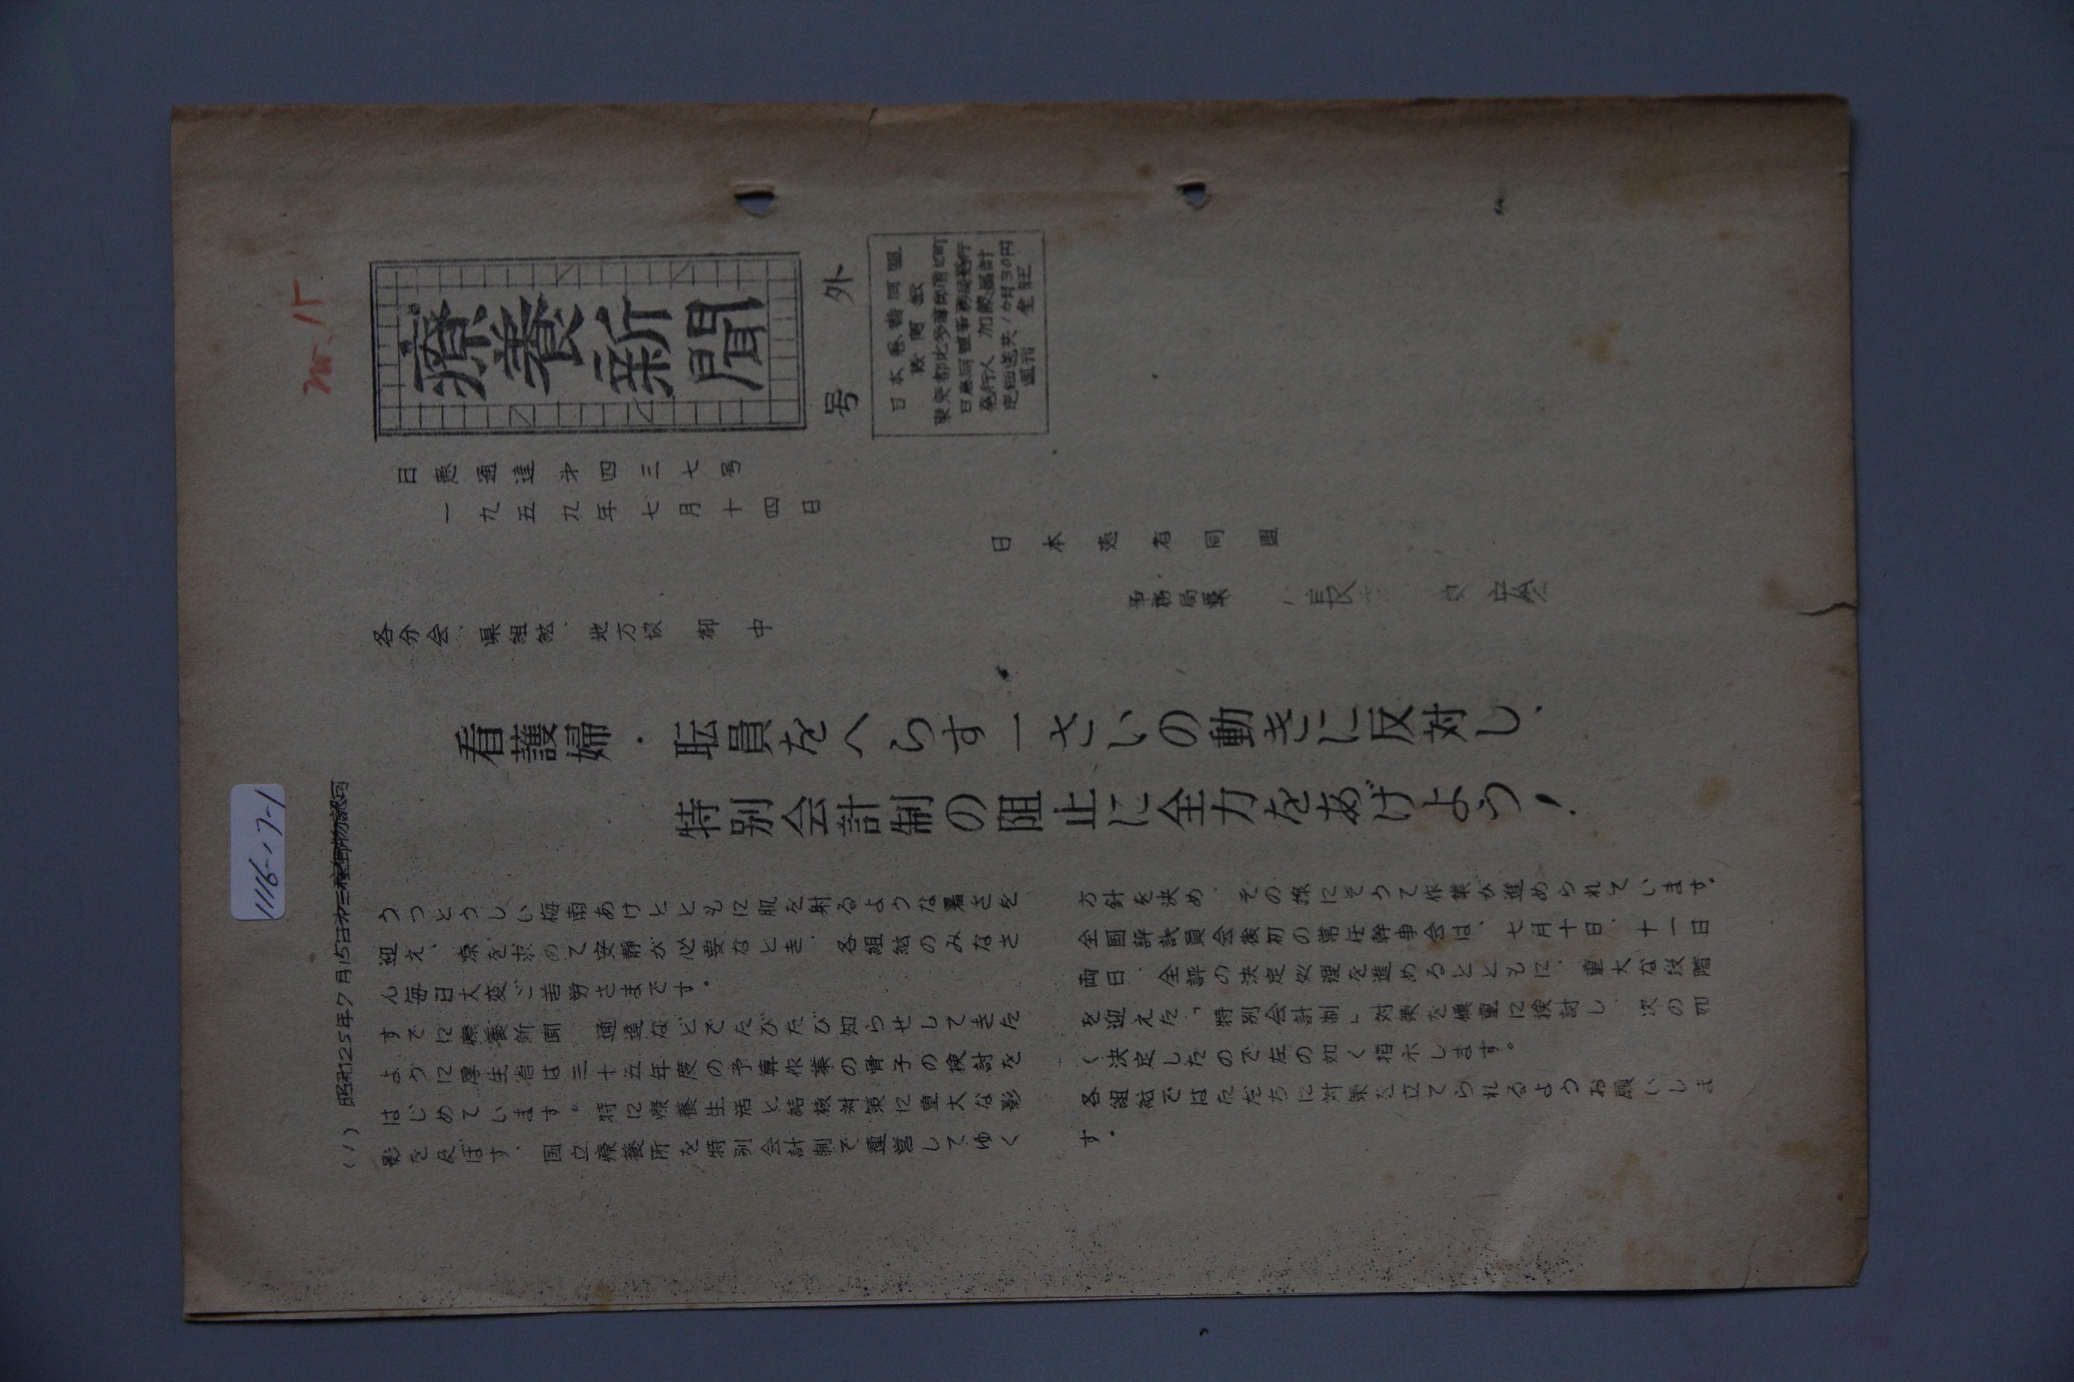 1116-17-1
No.15
(1)
昭和25年7月15日第三種郵便物認可
療養新聞
号外
日本患者同盟
定価送共1カ月30円
日患通達第四三七号
一九五九年七月十四日
日本患者同盟
事務局長
各分会、県組織、地方校 御中
看護婦・耺員をへらす一さいの動きに反対し、
特別会計制の阻止に全力をあげよう!
うっとうしい梅雨あけとともに肌を射るような暑さを
迎え、涼を求めて安静が必要なとき、各組織のみなさ
ん毎日大変ご苦労さまです。
すでに療養新聞、通達などでたびたび知らせしてきた
ように厚生省は三十五年度の予算作業の骨子の検討を
はじめています。特に療養生活と結核対策に重大な影
影を及ぼす、国立療養所を特別会計制で運営してゆく
方針を決め、その線にそって作業が進められています。
全国評議員会後初の常任幹事会は、七月十日、十一日
両日、全評の決定処理を進めるとともに、重大な段階
を迎えた「特別会計制」対策を慎重に検討し、次の如
く決定したので左の如く指示します。
各組織ではただちに対策を立てられるようお願いしま
す。